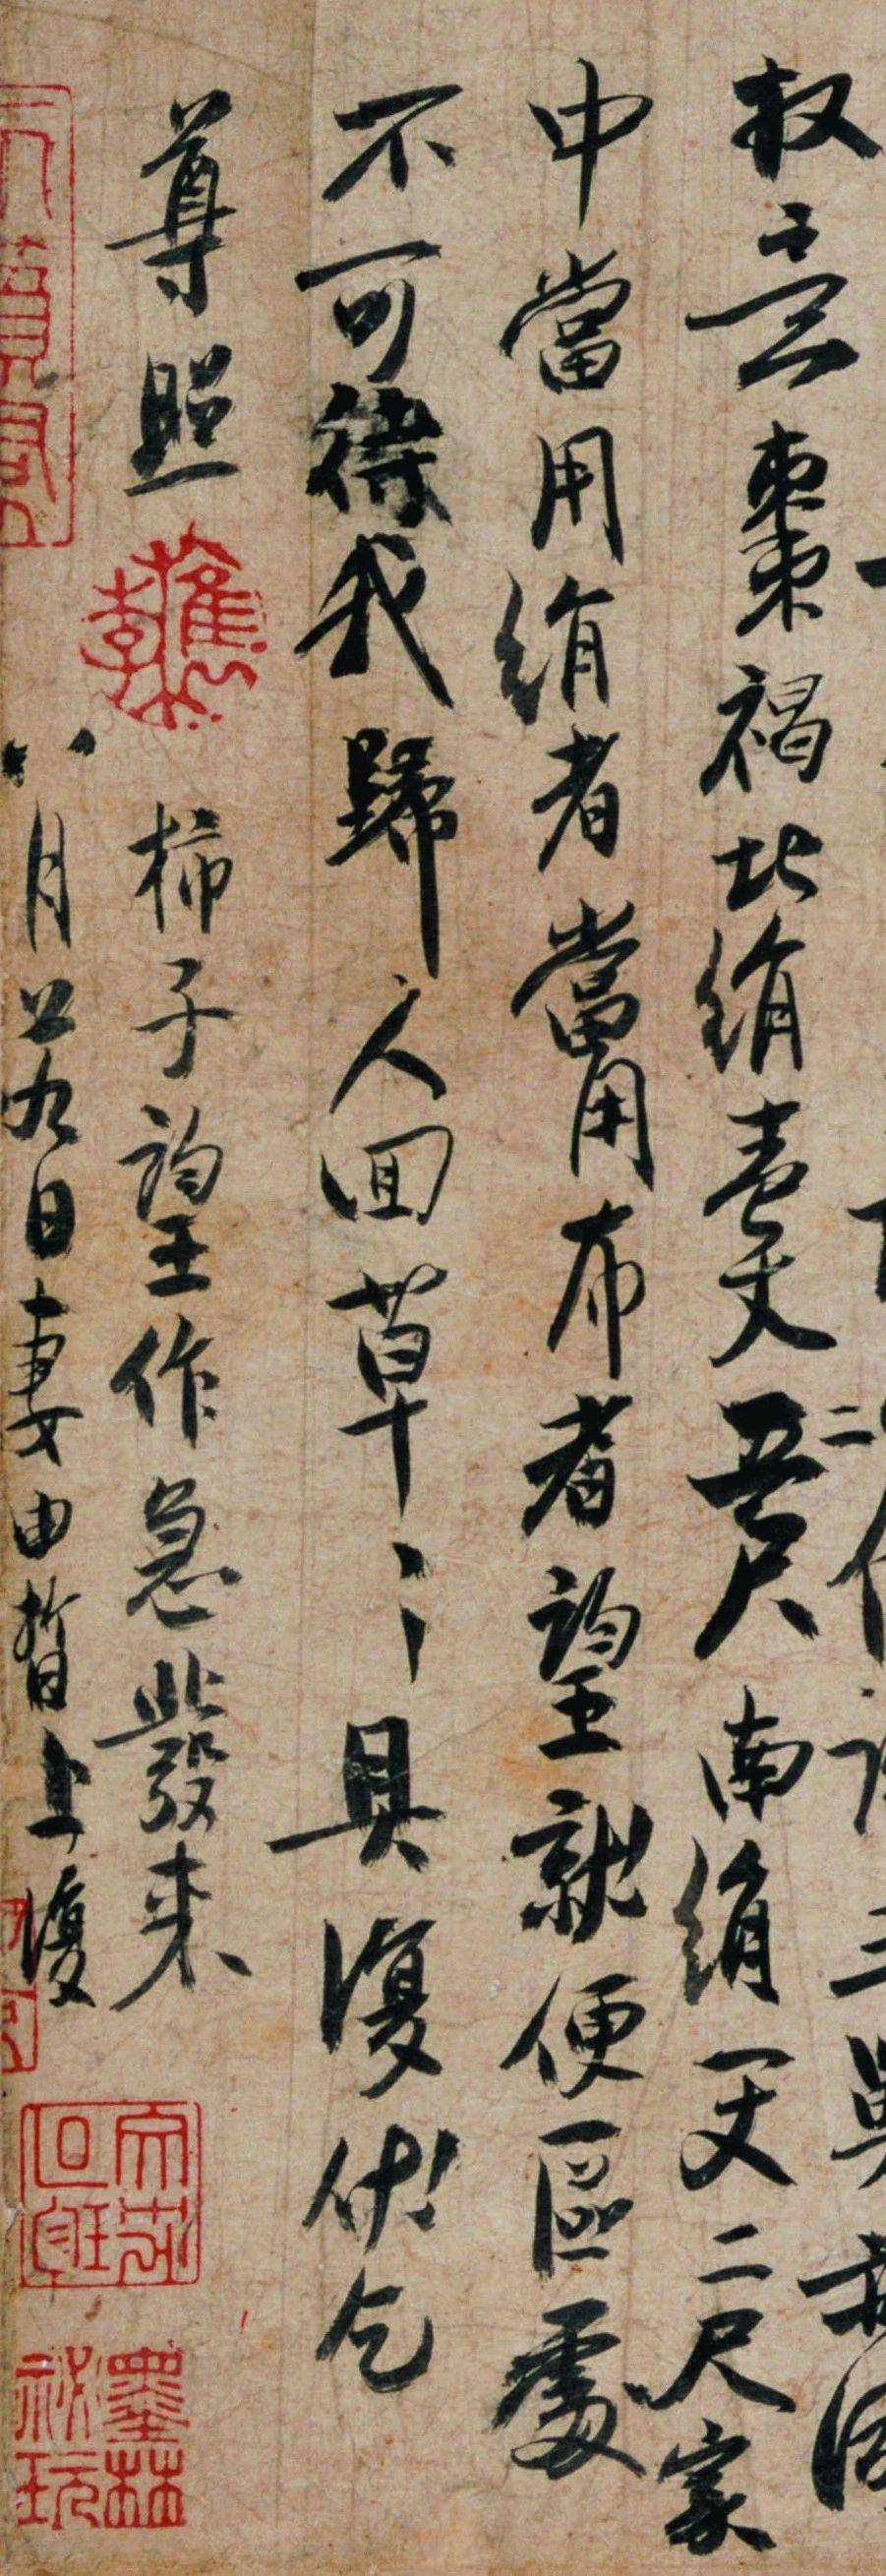 叔棗褐北絹壹丈五尺南絹一丈二尺家
中當用絹者當用布者望就便區處
不可待我歸人回草〻具復伏乞
尊照
柿子望作急發來
八月廿九日妻由皙上復
檇李
墨林秘玩